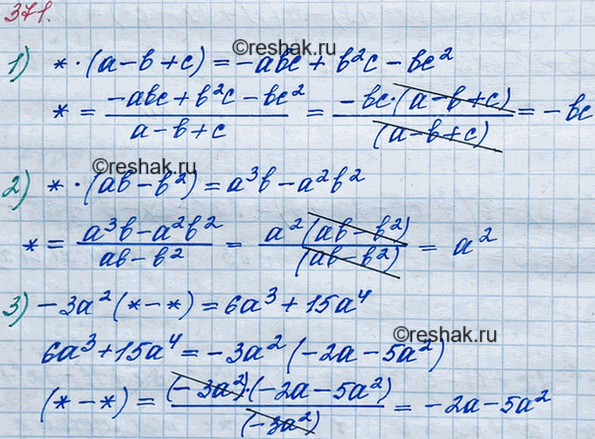 371.
©reshak.ru
1) * · (a-b+c) = -abc + b²c - bc²
* = (-abc + b²c - bc²)/(a-b+c) = (-bc·(a-b+c))/((a-b+c)) = -bc
©reshak.ru
2) * · (ab-b²) = a³b - a²b²
* = (a³b - a²b²)/(ab-b²) = (a²(ab-b²))/((ab-b²)) = a²
3) -3a²(*-*) = 6a³ + 15a⁴
©reshak.ru
6a³ + 15a⁴ = -3a²(-2a-5a²)
(*-*) = ((-3a²)·(-2a-5a²))/((-3a²)) = -2a-5a²